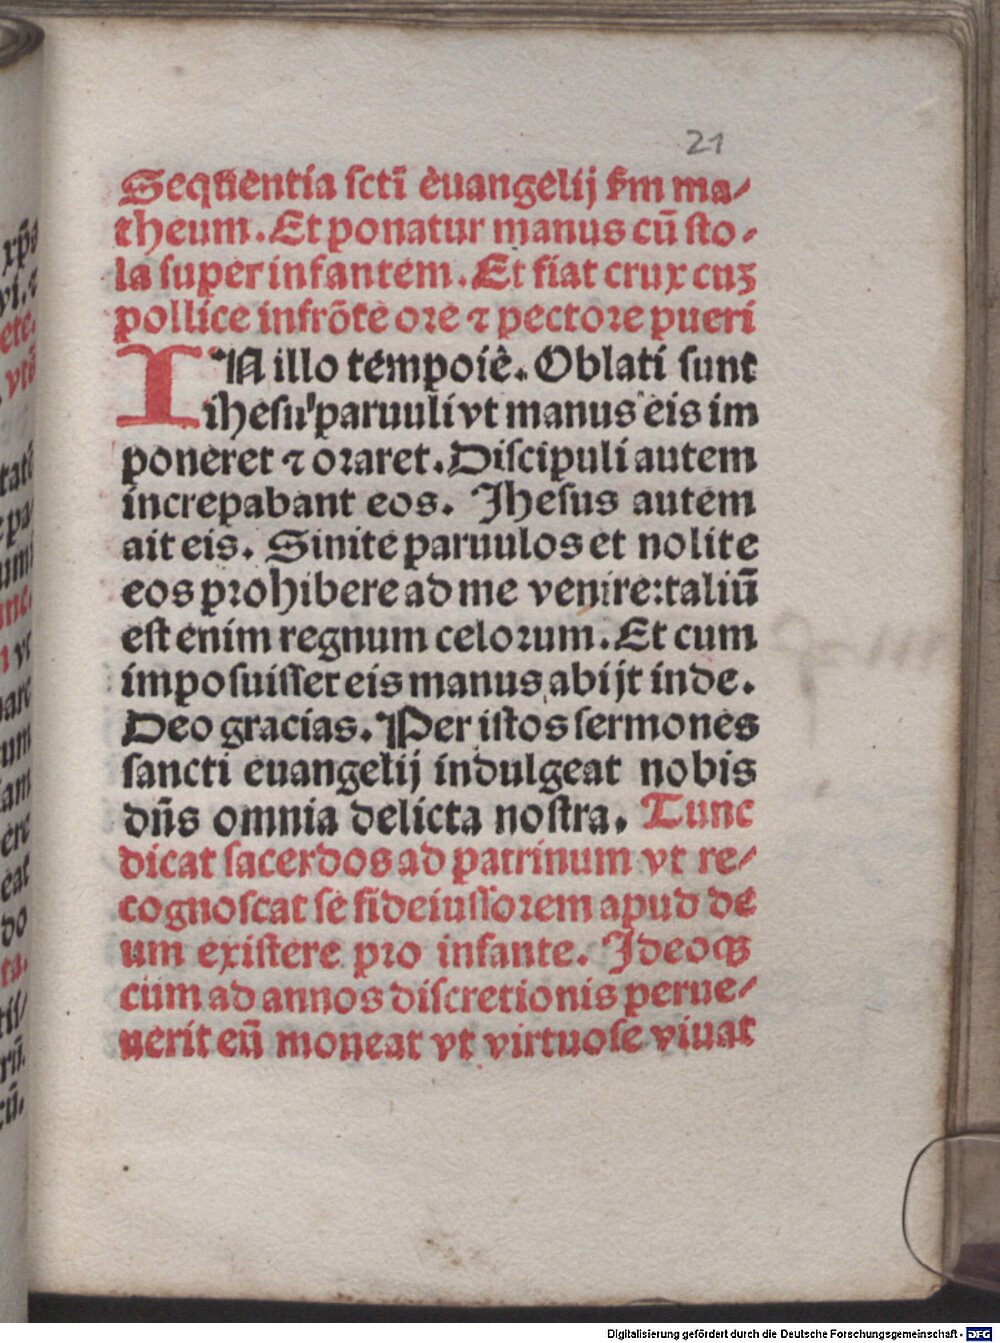 21
Sequentia scti̅ euangelij s̅m ma⸗
theum. Et ponatur manus cu̅ sto⸗
la super infantem. Et fiat crux cuꝫ
pollice in fro̅te ore ⁊ pectore pueri
IN illo tempore. Oblati sunt
ihesu paruuli vt manus eis im
poneret ⁊ oraret. Discipuli autem
increpabant eos. Jhesus autem
ait eis. Sinite paruulos et nolite
eos prohibere ad me venire: taliu̅
est enim regnum celorum. Et cum
imposuisset eis manus abijt inde.
Deo gracias. Per istos sermones
sancti euangelij indulgeat nobis
dn̅s omnia delicta nostra. Tunc
dicat sacerdos ad patrinum vt re⸗
cognoscat se fideiussorem apud de
um existere pro infante. Ideoqꝫ
cum ad annos discretionis perue⸗
nerit eu̅ moneat vt virtuose viuat
Digitalisierung gefördert durch die Deutsche Forschungsgemeinschaft - DFG